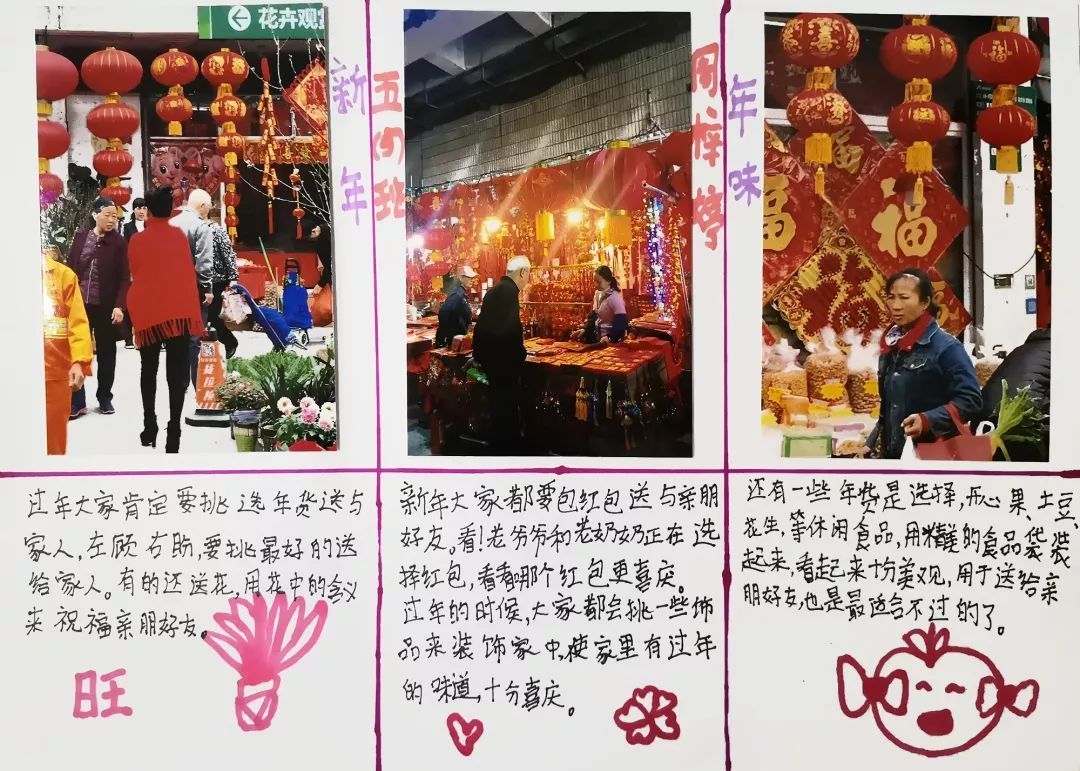 花卉观赏
新年
五(4)班
周梓婷
年味
福
福
过年大家肯定要挑选年货送与
家人,左顾右盼,要挑最好的送
给家人。有的还送花,用花中的含义
来祝福亲朋好友。
旺
新年大家都要包红包送与亲朋
好友。看!老爷爷和老奶奶正在选
择红包,看看哪个红包更喜庆。
过年的时候,大家都会挑一些饰
品来装饰家中,使家里有过年
的味道,十分喜庆。
还有一些年货是选择,开心果、土豆、
花生,等休闲食品,用精美的食品袋装
起来,看起来十分美观,用于送给亲
朋好友,也是最适合不过的了。